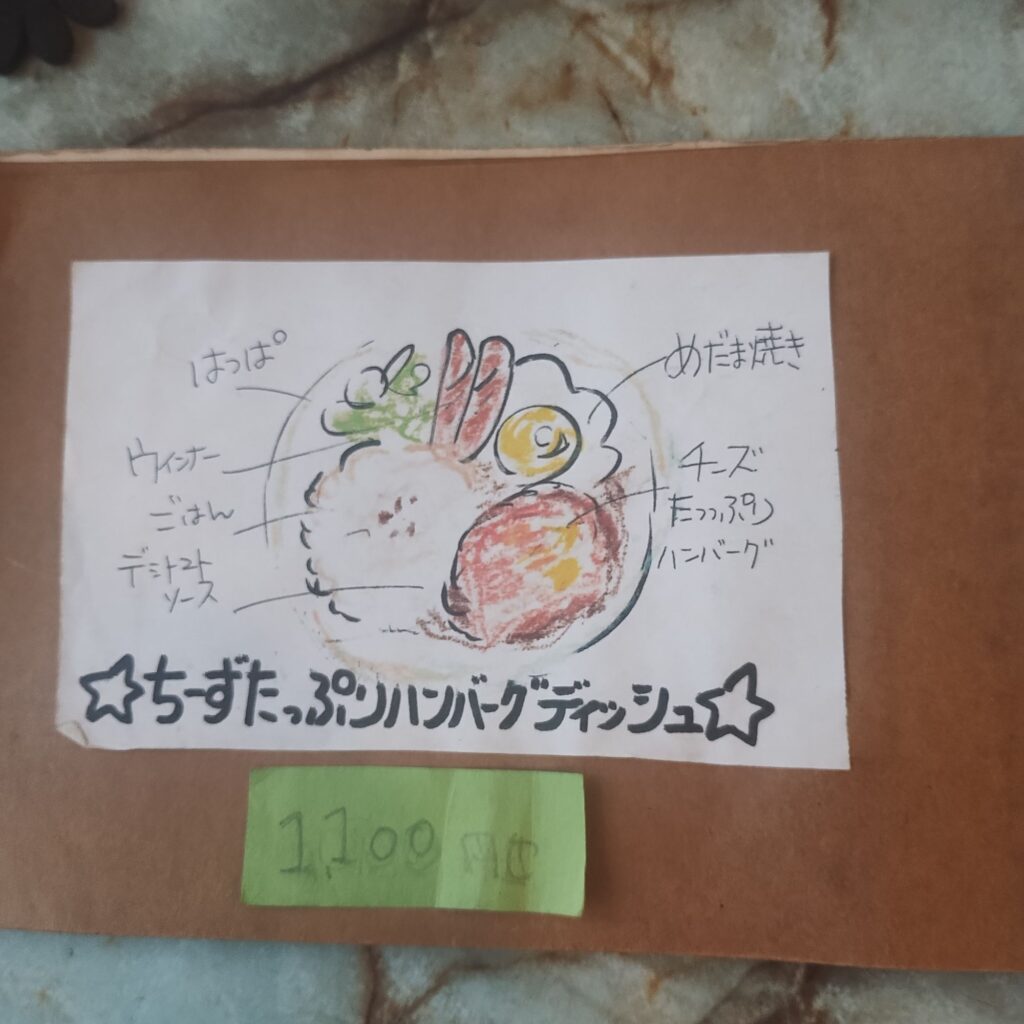 はっぱ
ウインナー
ごはん
デミトマト
ソース
めだま焼き
チーズ
たっぷり
ハンバーグ
☆ちーずたっぷりハンバーグディッシュ☆
1,100円